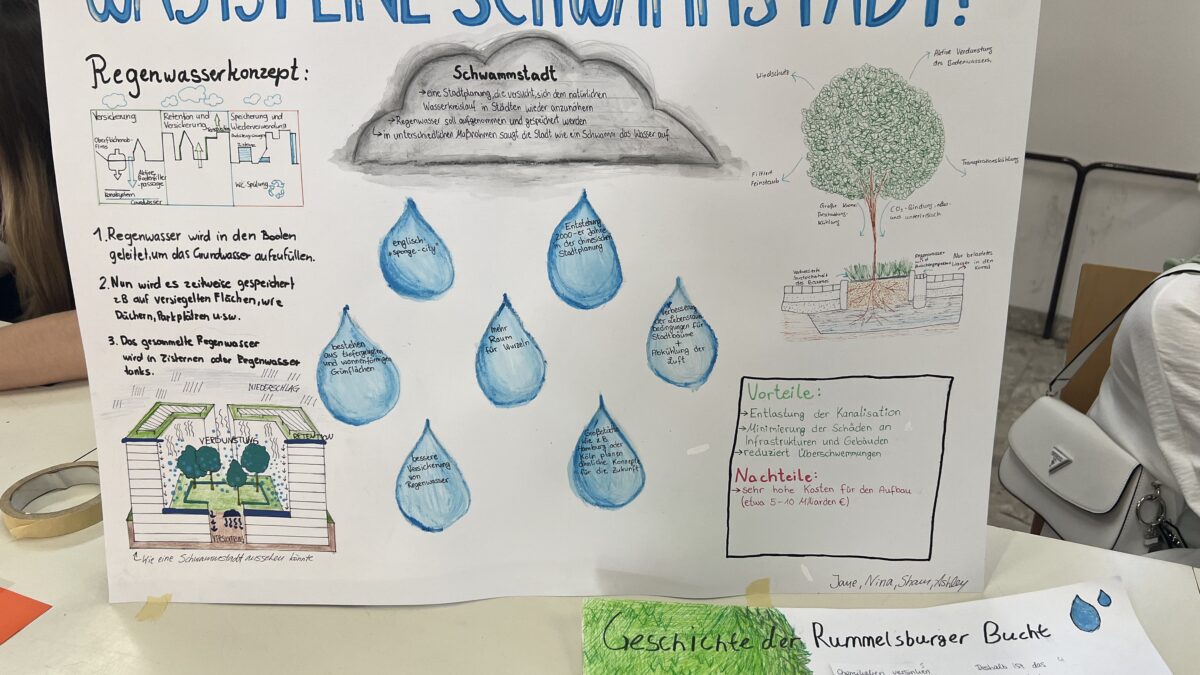 WAS IST EINE SCHWAMMSTADT?
Regenwasserkonzept:
Versickerung
Oberflächenab-
fluss
Aktive
Bodenfilter-
passage
Grundwasser
Retention und
Versickerung
Speicherung und
Wiederverwendung
Zisterne
WC Spülung
1. Regenwasser wird in den Boden
geleitet, um das Grundwasser aufzufüllen.
2. Nun wird es zeitweise gespeichert
zB auf versiegelten Flächen, wie
Dächern, Parkplätzen u.s.w.
3. Das gesammelte Regenwasser
wird in Zisternen oder Regenwasser
tanks.
NIEDERSCHLAG
VERDUNSTUNG
RETENTION
VERSICKERUNG
Wie eine Schwammestadt aussehen könnte
Schwammstadt
→ eine Stadtplanung, die versucht, sich dem natürlichen
Wasserkreislauf in Städten wieder anzunähern
→ Regenwasser soll aufgenommen und gespeichert werden
↳ in unterschiedlichen Maßnahmen saugt die Stadt wie ein Schwamm das Wasser auf
englisch:
"sponge-city"
Entstehung
2000-er Jahre
in der chinesischen
Stadtplanung
bestehen
aus tiefergelegten
und wannenförmigen
Grünflächen
mehr
Raum
für Wurzeln
Verbesserung
der Lebensraum
bedingungen für
Stadtbäume
+
Abkühlung der
Luft
bessere
Versickerung
von
Regenwasser
Großstädte
wie z.B.
Hamburg oder
Köln planen
ähnliche Konzepte
für die Zukunft
Windschutz
Aktive Verdunstung
des Bodenwassers
Filtert
Feinstaub
Transpirationskühlung
Große Krone
Beschattung
Kühlung
CO₂-Bindung, ober-
und unterirdisch
des Baumes
Nur belastetes
in den
Kanal
Vorteile:
→ Entlastung der Kanalisation
→ Minimierung der Schäden an
Infrastrukturen und Gebäuden
→ reduziert Überschwemmungen
Nachteile:
→ sehr hohe Kosten für den Aufbau
(etwa 5-10 Milliarden €)
Jane, Nina, Sham, Ashley
Geschichte der Rummelsburger Bucht
Chemikalien versinken
Deshalb ist das